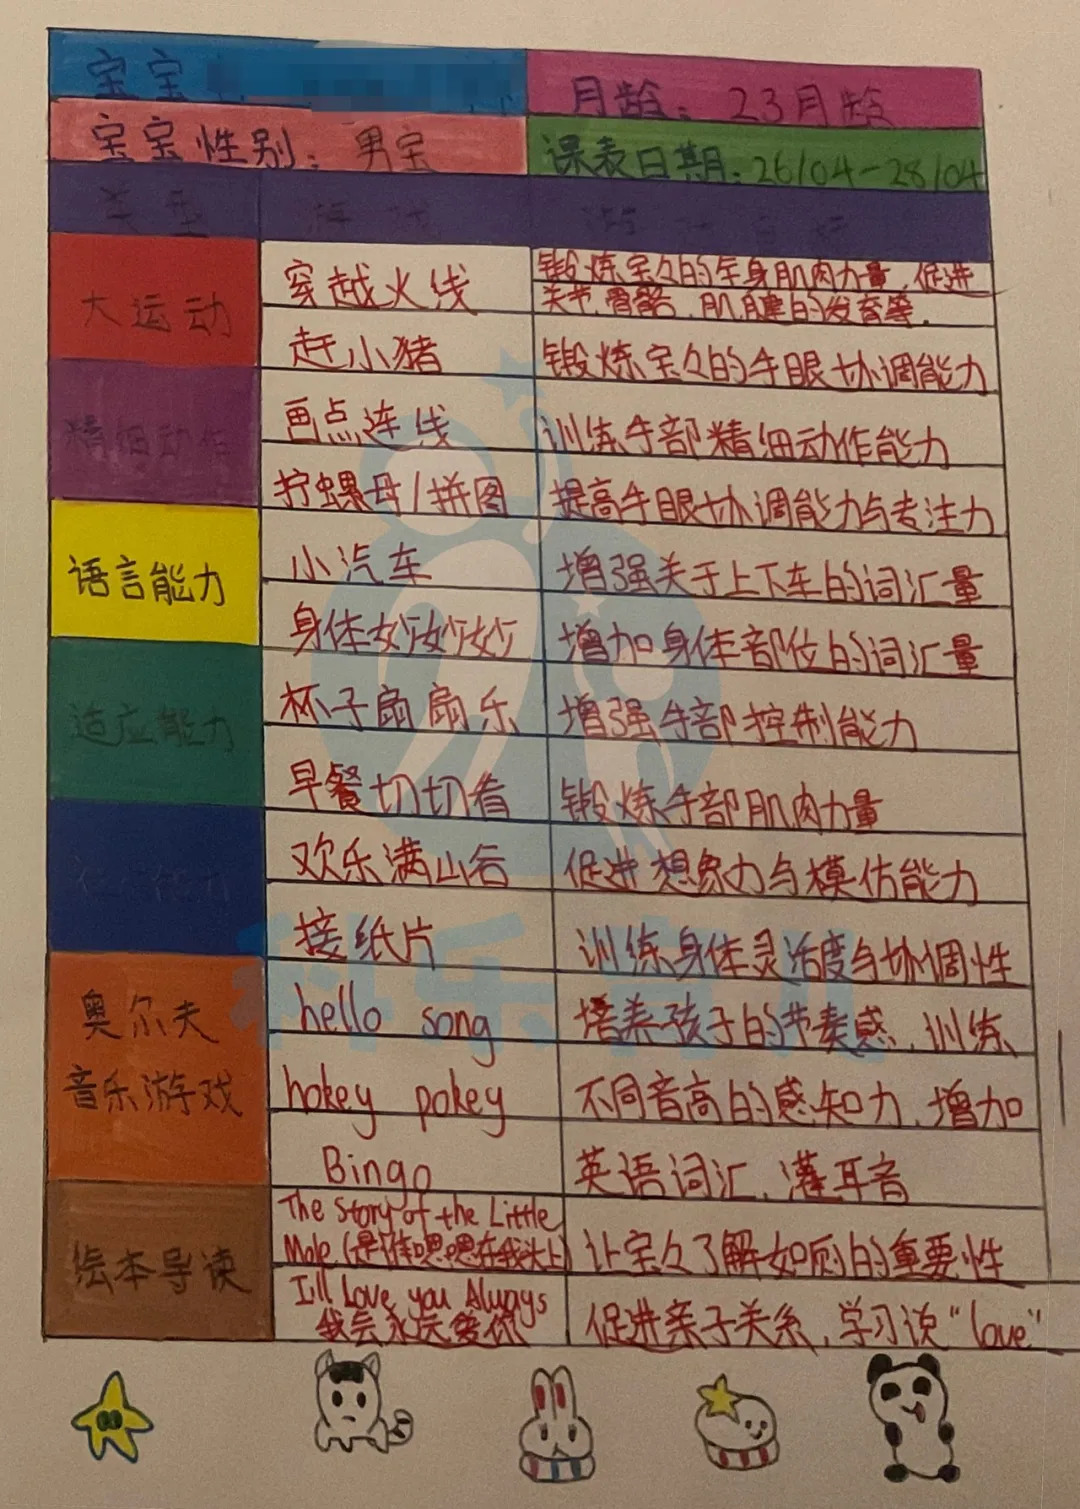 宝宝
月龄：23月龄
宝宝性别：男宝
课表日期：26/04-28/04
类型
大运动
穿越火线
锻炼宝々的全身肌肉力量，促进
关节，骨骼，肌腱的发育等，
赶小猪
锻炼宝々的手眼协调能力
精细动作
画点连线
训练手部精细动作能力
拧螺母/拼图
提高手眼协调能力与专注力
语言能力
小汽车
增强关于上下车的词汇量
身体妙妙妙
增加身体部位的词汇量
适应能力
杯子扇扇乐
增强手部控制能力
早餐切切看
锻炼手部肌肉力量
欢乐满山谷
促进想象力与模仿能力
接纸片
训练身体灵活度与协调性
奥尔夫
音乐游戏
hello song
培养孩子的节奏感，训练
hokey pokey
不同音高的感知力，增加
Bingo
英语词汇，灌耳音
绘本导读
The Story of the Little
Mole（是谁嗯嗯在我头上）
让宝々了解如厕的重要性
I'll Love you Always
我会永远爱你
促进亲子关系，学习说“love”
科乐育儿